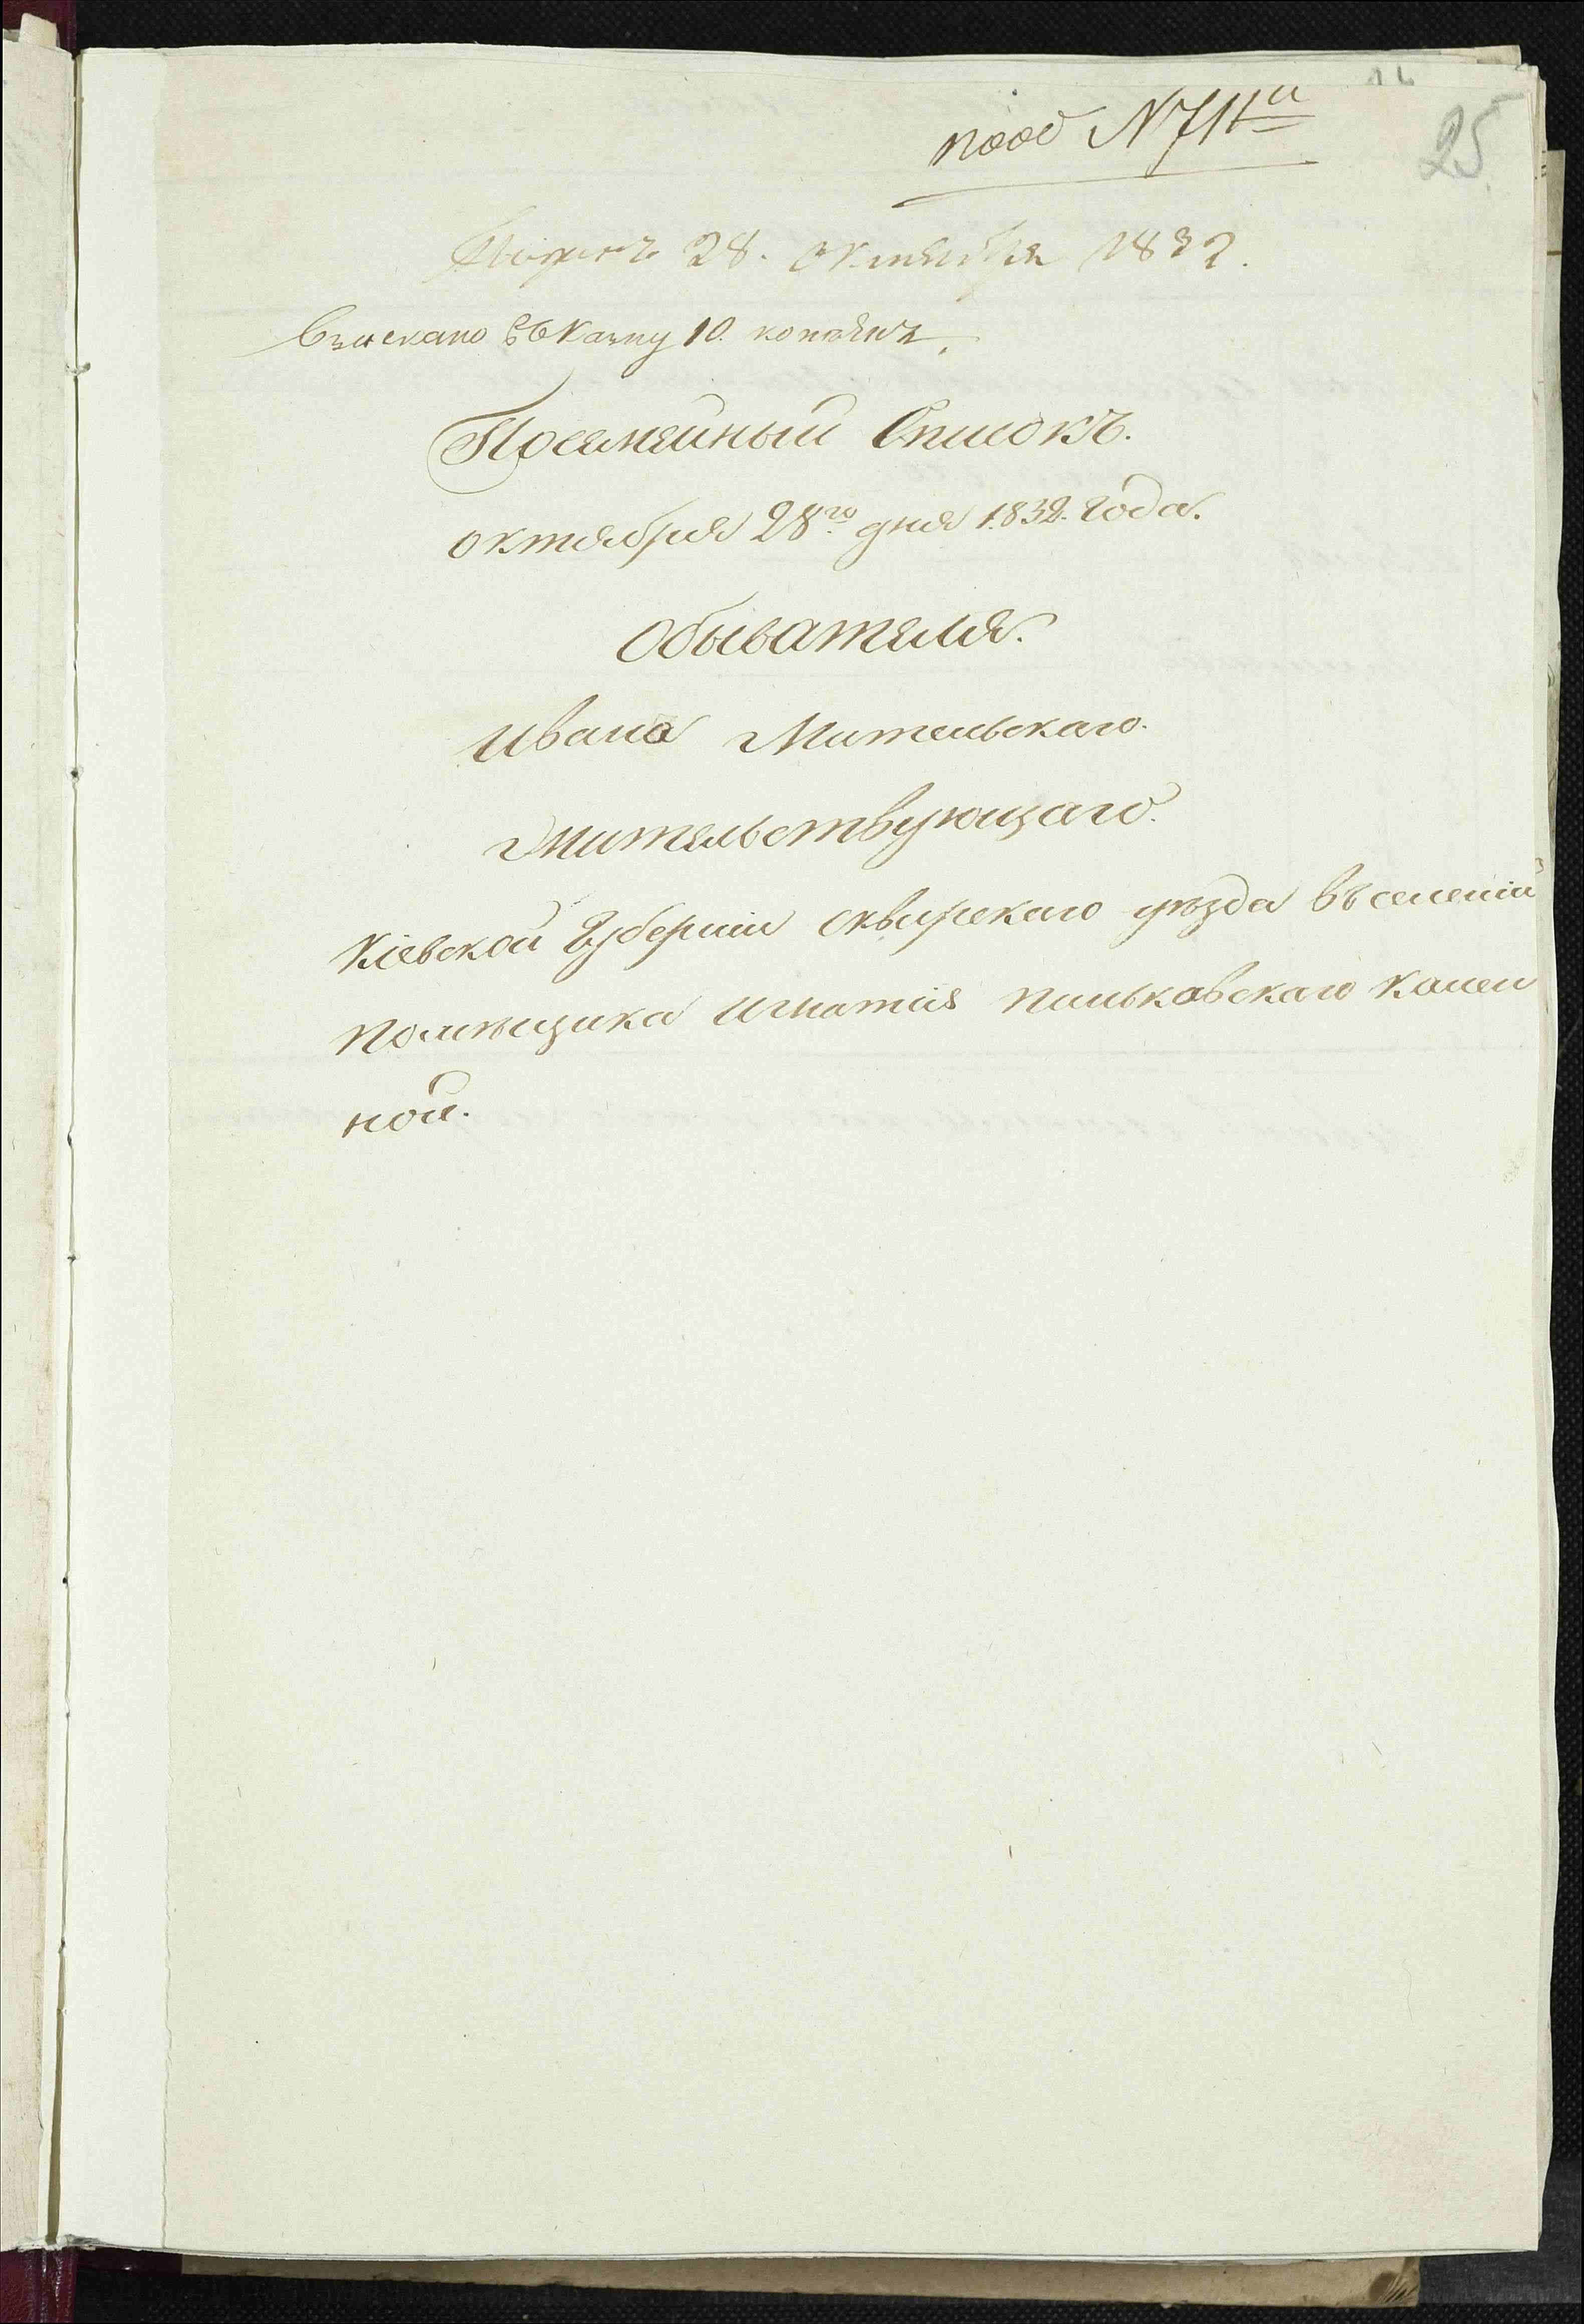 25
подъ N 711ъ
28. октября 1832.
Взыскано въ Казну 10. копѣекъ.
Посемейный Списокъ.
октября 28го дня 1832. года.
Обывателя.
Ивана Мительскаго.
Жительствующаго.
Кіевской Губерніи Сквирскаго уѣзда въ селеніи
помѣщика Игнатія Пиньковскаго Камен
ной.